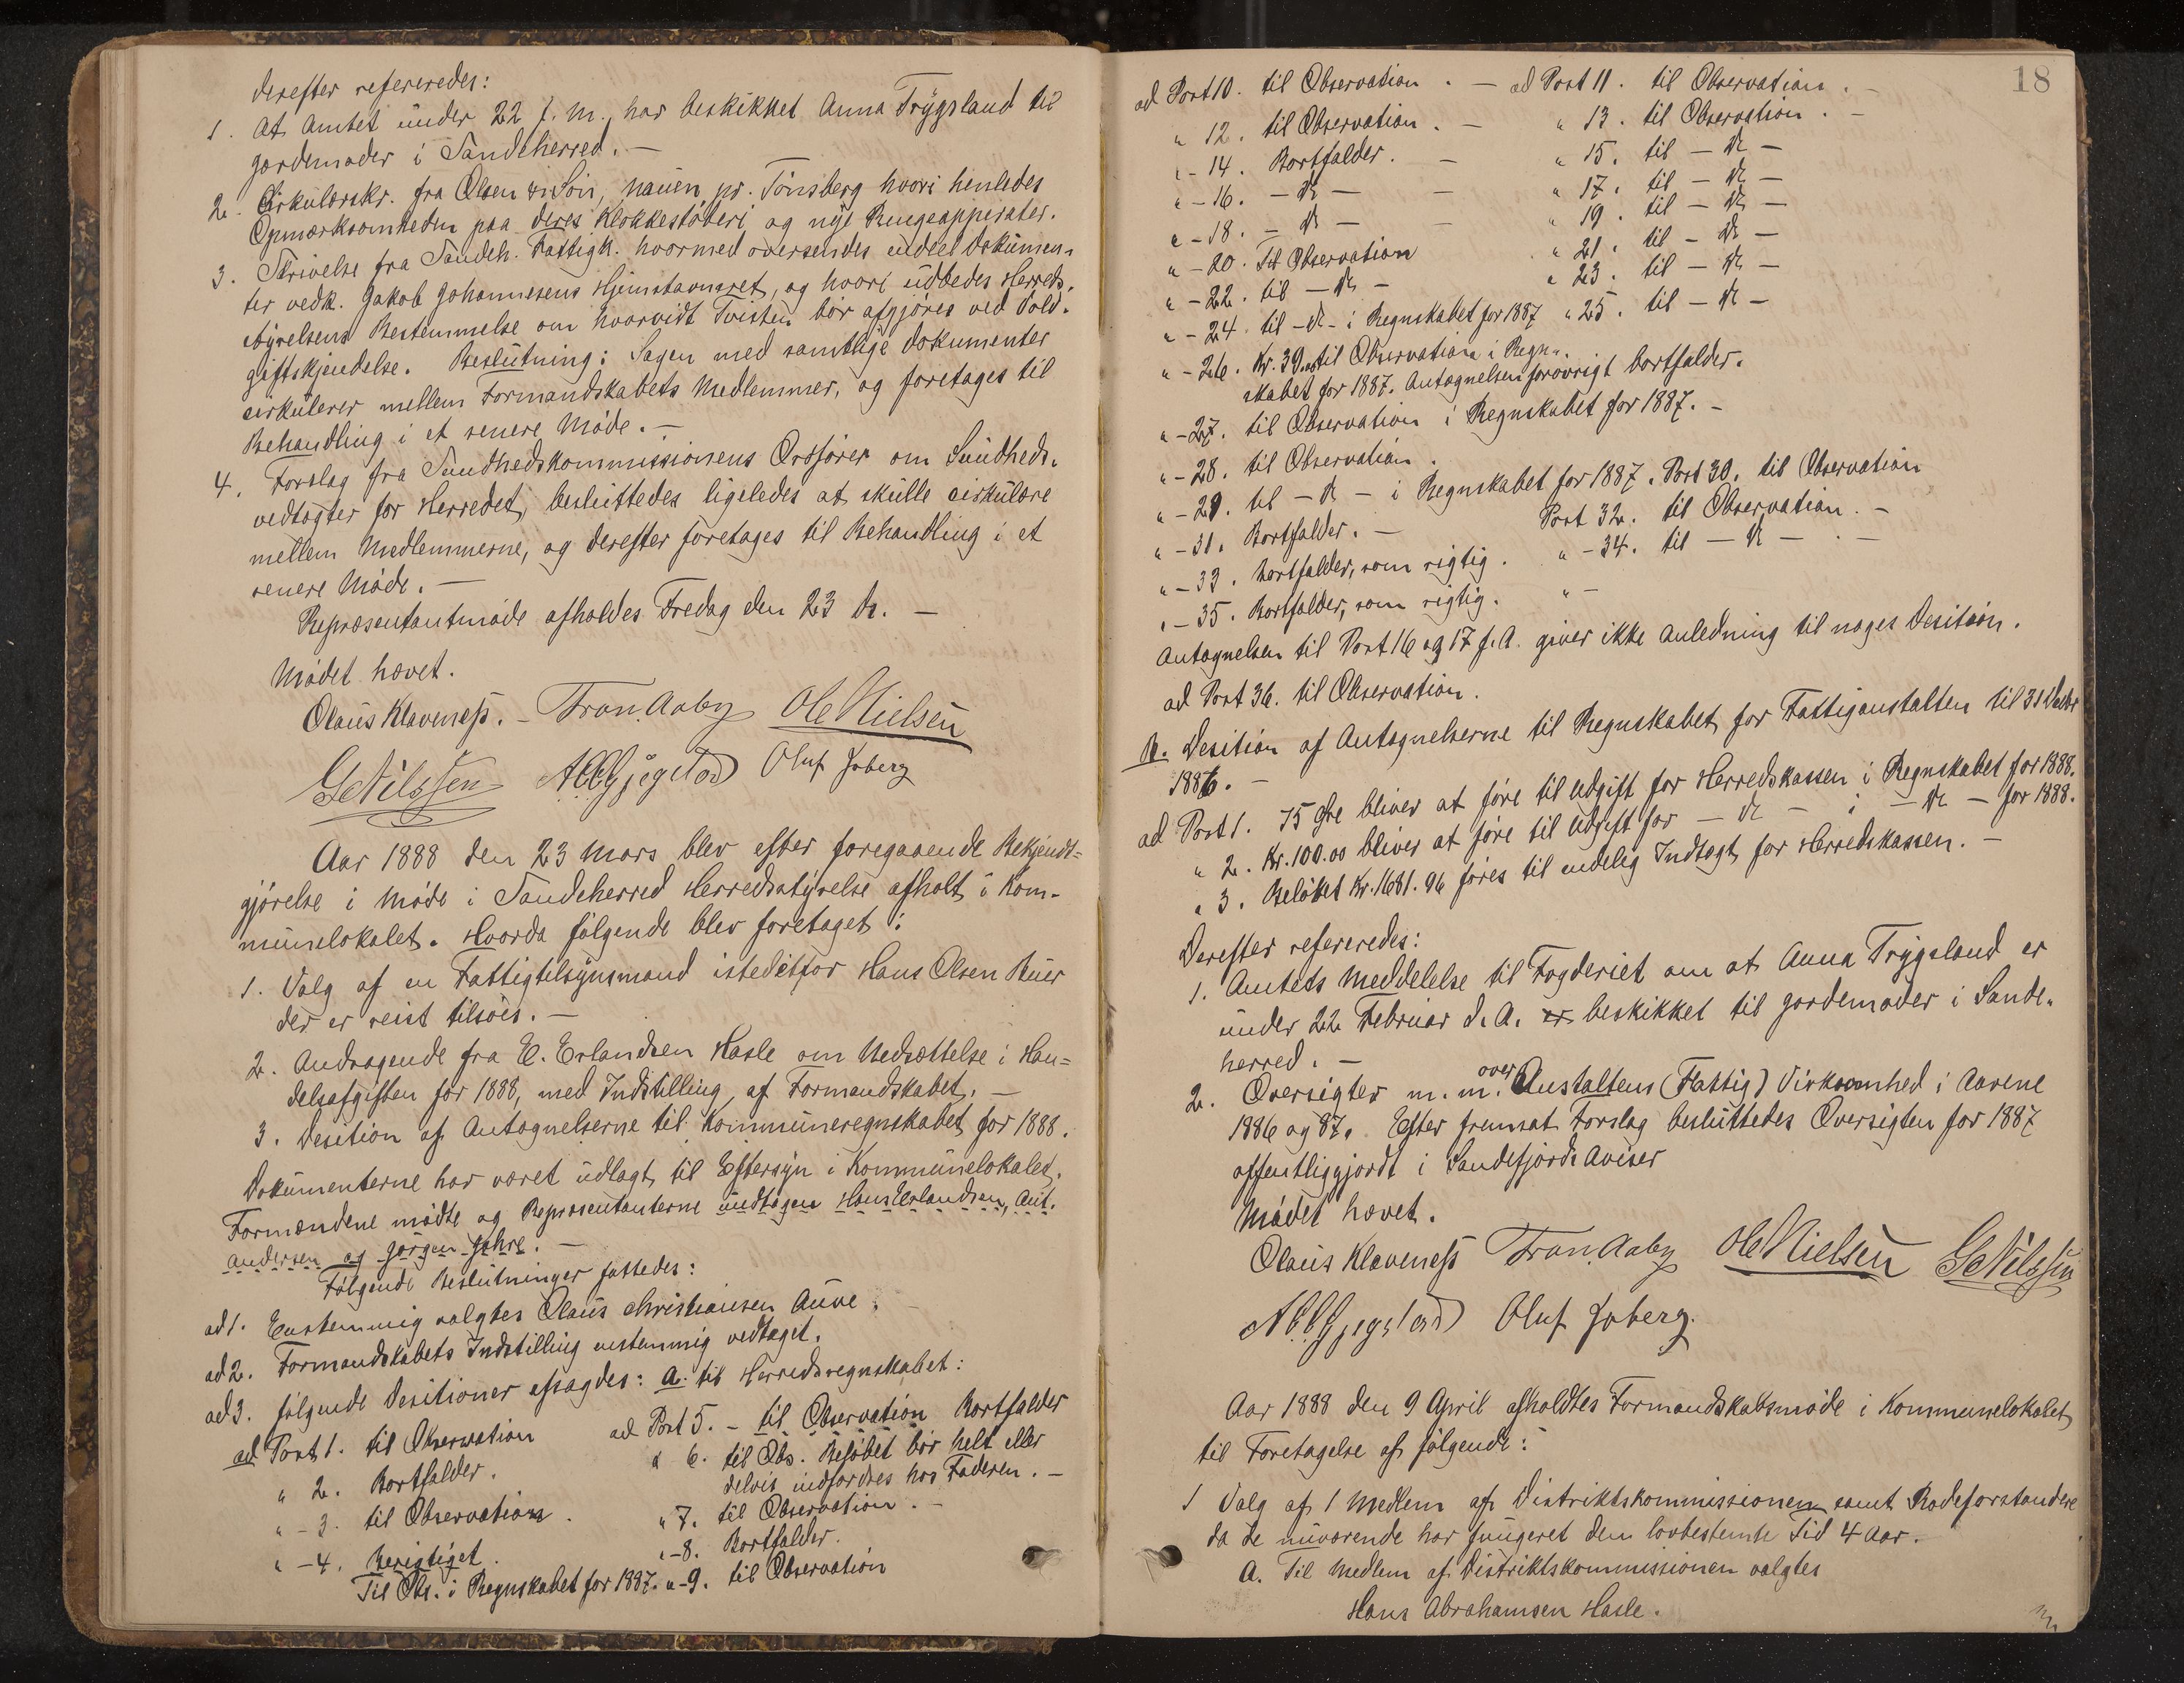 derefter refereredes:
1. At Amtet under 22 f. M. har beskikket Anna Trygsland til
Jordemoder i Sandeherred. —
2. Cirkulærskr. fra Olsen & Søn, Nauen pr. Tønsberg hvori henledes
Opmærksomheden paa deres Klokkestøberi og nye Ringeapperater.
3. Skrivelse fra Sandeh. Fattigk. hvormed oversendes endel Dokumen-
ter vedk. Jakob Johannesens Hjemstavnsret, og hvori udbedes Herreds-
styrelsens Bestemmelse om hvorvidt Tvisten bør afgjøres ved Vold-
giftskjendelse. Beslutning: Sagen med samtlige Dokumenter
cirkulerer mellem Formandskabets Medlemmer, og foretages til
Behandling i et senere Møde. —
4. Forslag fra Sundhedskommissionens Ordfører om Sundheds-
vedtægter for Herredet, besluttedes ligeledes at skulle cirkulere
mellem Medlemmerne, og derefter foretages til Behandling i et
senere Møde. —
Repræsentantmøde afholdes Fredag den 23 ds. —
Mødet hævet.
Olaus Klaveness. - Fran. Aaby Ole Nielsen
G Nilssen A. C. Gjegstad Oluf Joberg
Aar 1888 den 23 Mars blev efter foregaaende Bekjendt=
gjørelse i Møde i Sandeherred Herredsstyrelse afholt i Kom-
munelokalet. Hvorda følgende blev foretaget:
1. Valg af en Fattigtilsynsmand istedetfor Hans Olsen Buer
der er reist tilsøes. —
2. Andragende fra E. Erlandsen Hasle om Nedsættelse i Han=
delsafgiften for 1888, med Indstilling af Formandskabet. —
3. Desition af Antagnelserne til Kommuneregnskabet for 1888.
Dokumenterne har været udlagt til Eftersyn i Kommunelokalet.
Formændene mødte og Repræsentanterne undtagen Hans Erlandsen, Ant.
Andersen og Jørgen Jahre. —
Følgende Beslutninger fattedes:
ad 1. Enstemmig valgtes Olaus Christiansen Auve.
ad 2. Formandskabets Indstilling enstemmig vedtaget.
ad 3. følgende Desitioner afsagdes: A. til Herredsregnskabet:
ad Post 1. til Observation ad Post 5. - til Observation Bortfalder
" 2. Bortfalder. " 6. til Obs. Beløbet bør helt eller
delvis indfordres hos Faderen. —
" - 3. til Observation. " 7. til Observation. -
" - 4. Berigtiget. " - 8. Bortfalder.
Til Obs. i Regnskabet for 1887. " - 9. til Observation
18
ad Post 10. til Observation. — ad Post 11. til Observation. —
" 12. til Observation. — " 13. til Observation. —
" - 14. Bortfalder. — " 15. til — do —
" - 16. — do — — " 17. til — do —
" - 18. — do — — " 19. til — do —
" - 20. Til Observation " 21. til — do —
" - 22. til — do — " 23. til — do —
" - 24. til - do - i Regnskabet for 1887 " 25. til — do —
" - 26. Kr. 39.00 til Observation i Regn-
skabet for 1887. Antagnelsen forøvrigt bortfalder.
" - 27. til Observation i Regnskabet for 1887. -
" - 28. til Observation.
" - 29. til — do — i Regnskabet for 1887. Post 30. til Observation
" - 31. Bortfalder. — Post 32. til Observation. —
" - 33. bortfalder, som rigtig. " - 34. til — do — . —
" - 35. Bortfalder, som rigtig. " -
Antagnelsen til Post 16 og 17 f. A. giver ikke Anledning til noges Desition.
ad Post 36. til Observation.
B. Desition af Antagnelserne til Regnskabet for Fattiganstalten til 31 Decbr
1886. —
ad Post 1. 75 Øre bliver at føre til Udgift for Herredskassen i Regnskabet for 1888.
" 2. Kr. 100.00 bliver at føre til Udgift for — do — i — do — for 1888.
" 3. Beløbet Kr. 1681.96 føres til endelig Indtægt for Herredskassen. —
Derefter refereredes:
1. Amtets Meddelelse til Fogderiet om at Anna Trygsland er
under 22 Februar d. A. er beskikket til Jordemoder i Sande-
herred. —
2. Oversigter m. m. over Anstaltens (Fattig) Virksomhed i Aarene
1886 og 87. Efter fremsat Forslag besluttedes Oversigten for 1887
offentliggjordt i Sandefjords Aviser
Mødet hævet.
Olaus Klaveness Fran. Aaby Ole Nielsen G Nilssen
A. C. Gjegstad Oluf Joberg.
Aar 1888 den 9 April afholdtes Formandskabsmøde i Kommunelokalet
til Foretagelse af følgende:
1 Valg af 1 Medlem af Distriktskommissionen samt Rodeforstandere
da de nuværende har fungeret den lovbestemte Tid 4 Aar. -
A. Til Medlem af Distriktskommissionen valgtes
Hans Abrahamsen Hasle.